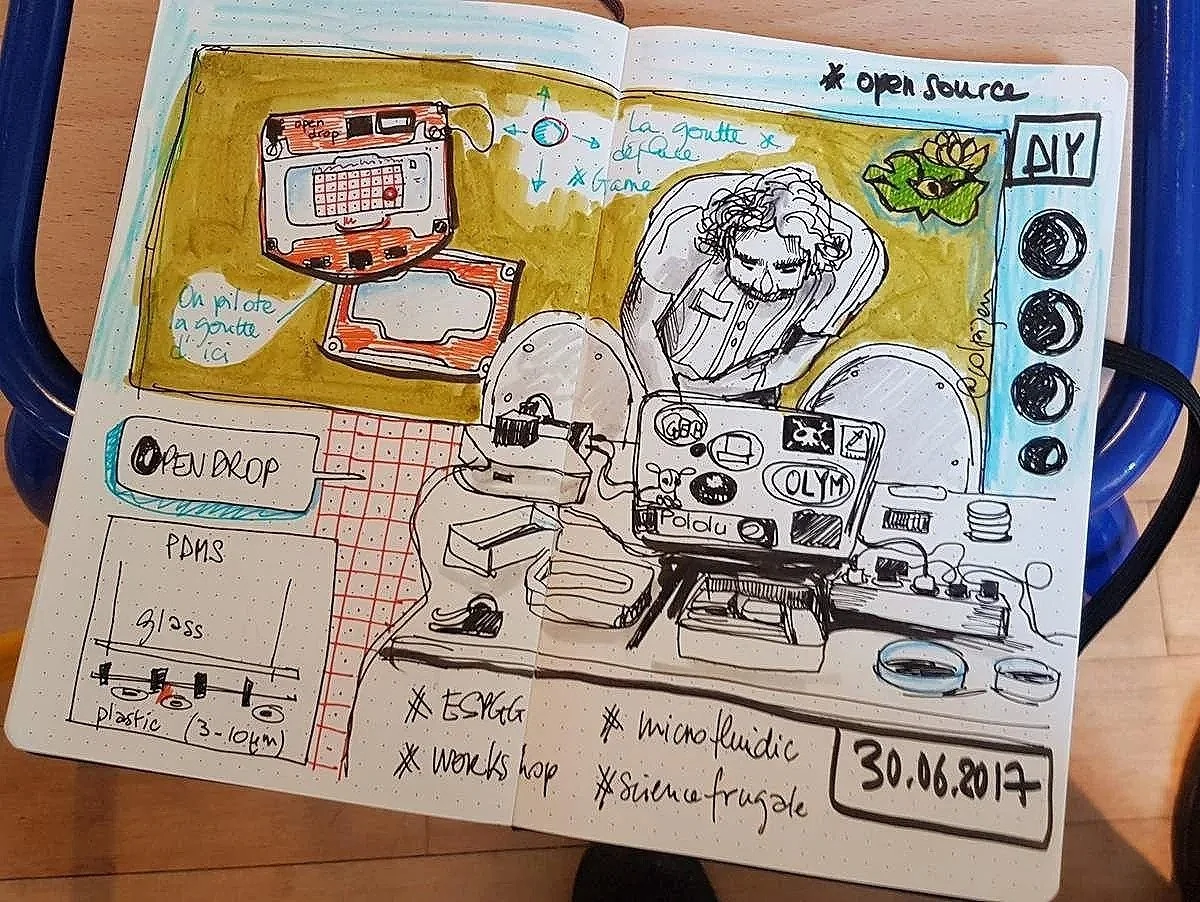 * open source
DIY
open
drop
La goutte se
déplace
* Game
On pilote
la goutte
d'ici
OPENDROP
PDMS
glass
plastic (3-10µm)
OLYM
Pololu
* ESPGG
* workshop
* microfluidic
* science frugale
30.06.2017